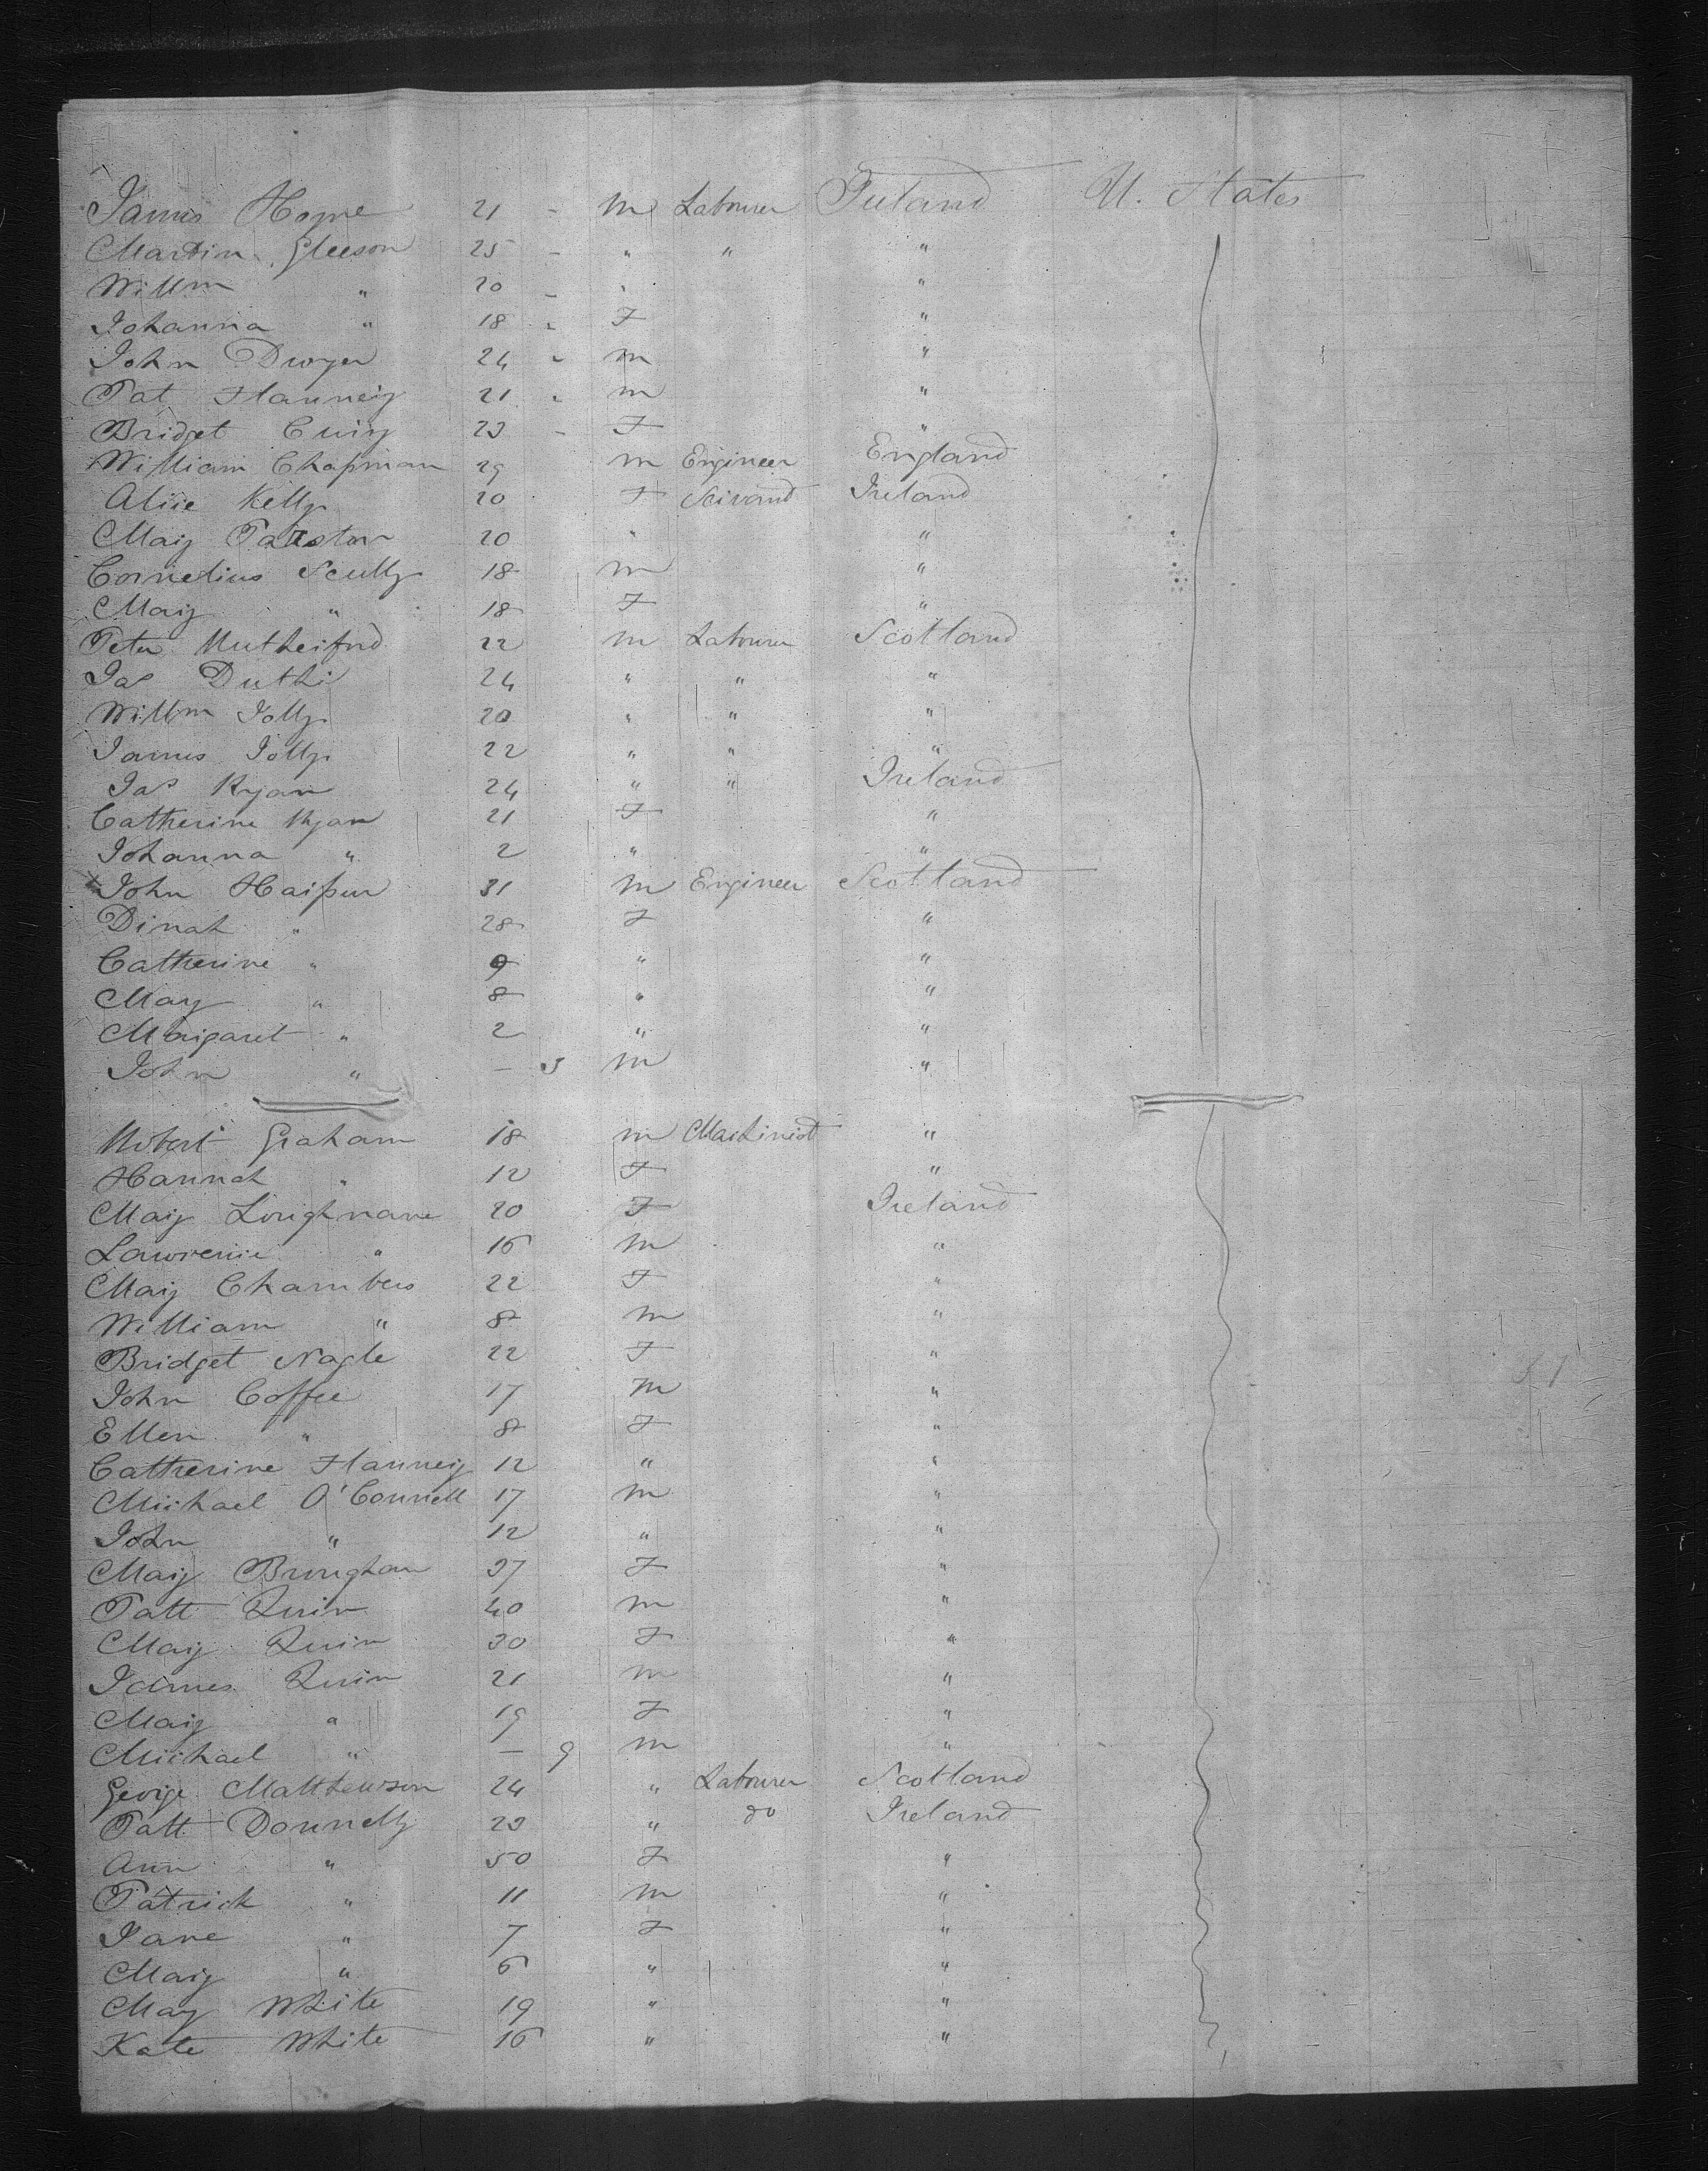 James Hogne 21 - M Labourer Ireland U. States
Martin Gleeson 25 - " " "
Willm " 20 - " "
Johanna " 18 - F "
John Dwyer 24 - M "
Pat Flannery 21 - M "
Bridget 23 - F "
William Chapman 29 M Engineer England
Alice Kelly 20 F Servant Ireland
Mary 20 " "
Cornelius Scully 18 M "
Mary " 18 F "
Peter Rutherford 22 M Labourer Scotland
Jas Duthi 24 " " "
Willm Jolly 20 " " "
James Jolly 22 " " "
Jas Ryan 24 " " Ireland
Catherine Ryan 21 F "
Johanna " 2 " "
John 31 M Engineer Scotland
Dinah " 28 F "
Catherine " 9 " "
Mary " 8 " "
Margaret " 2 " "
John " - 3 M "
Robert Graham 18 M Machinist "
Hannah " 12 F "
Mary Loughnane 20 F Ireland
Lawrence " 16 M "
Mary Chambers 22 F "
William " 8 M "
Bridget Nagle 22 F "
John Coffee 17 M "
Ellen " 8 F "
Catherine Flannery 12 " "
Michael O'Connell 17 M "
John " 12 " "
Mary Broughan 37 F "
Patt Quin 40 M "
Mary Quin 30 F "
James Quin 21 M "
Mary " 19 F "
Michael " - 9 M "
George Matthewson 24 " Labourer Scotland
Patt Donnelly 23 " do Ireland
Ann " 50 F "
Patrick " 11 M "
Jane " 7 F "
Mary " 6 " "
Mary White 19 " "
Kate White 16 " "